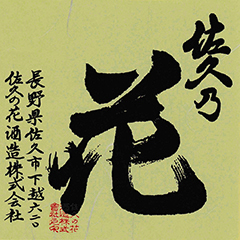 佐久乃
花
長野県佐久市下越六二〇
佐久の花酒造株式会社